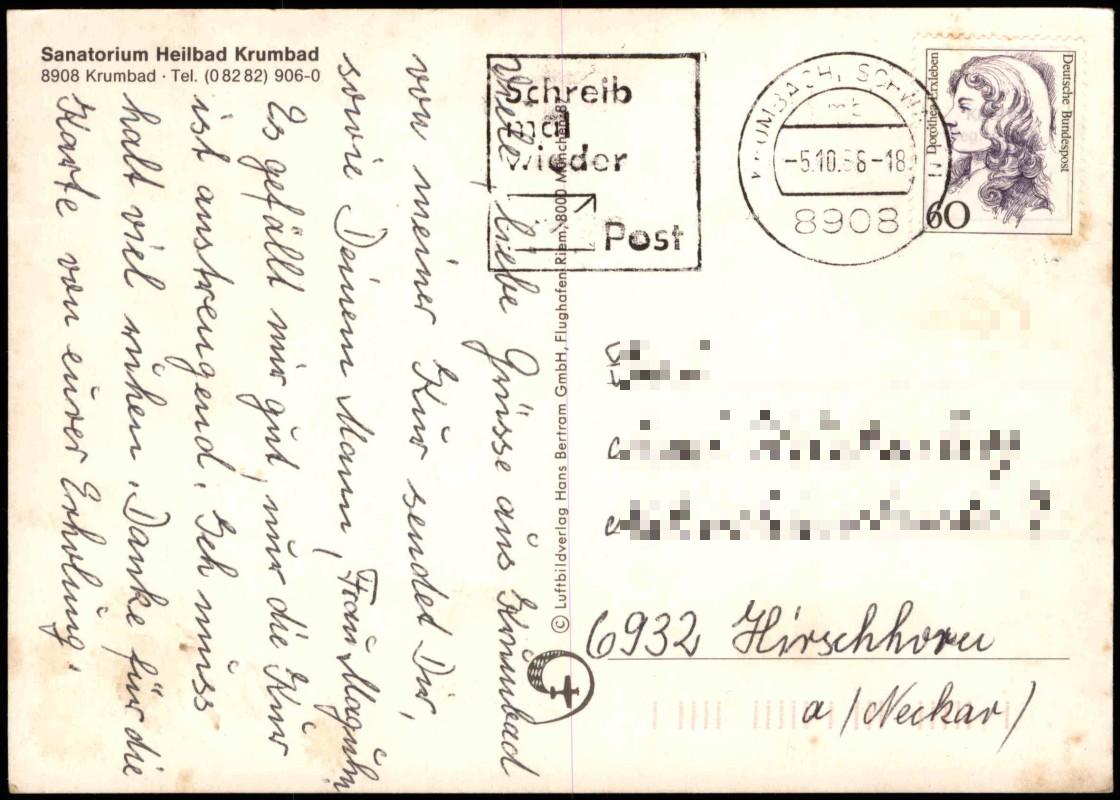 Sanatorium Heilbad Krumbad
8908 Krumbad · Tel. (0 82 82) 906-0
Viele, liebe Grüsse aus Krumbad
von meiner Kur sendet Dir,
sowie Deinem Mann, Frau
Es gefällt mir gut, nur die Kur
ist anstrengend. Ich muss
halt viel ruhen. Danke für die
Karte von eurer Erholung.
© Luftbildverlag Hans Bertram GmbH, Flughafen Riem, 8000 München 87
Schreib
mal
wieder
Post
KRUMBACH, SCHW
mb
-5.10.88-18
8908
Deutsche Bundespost
Dorothea Erxleben
60
6932 Hirschhorn
a/Neckar/